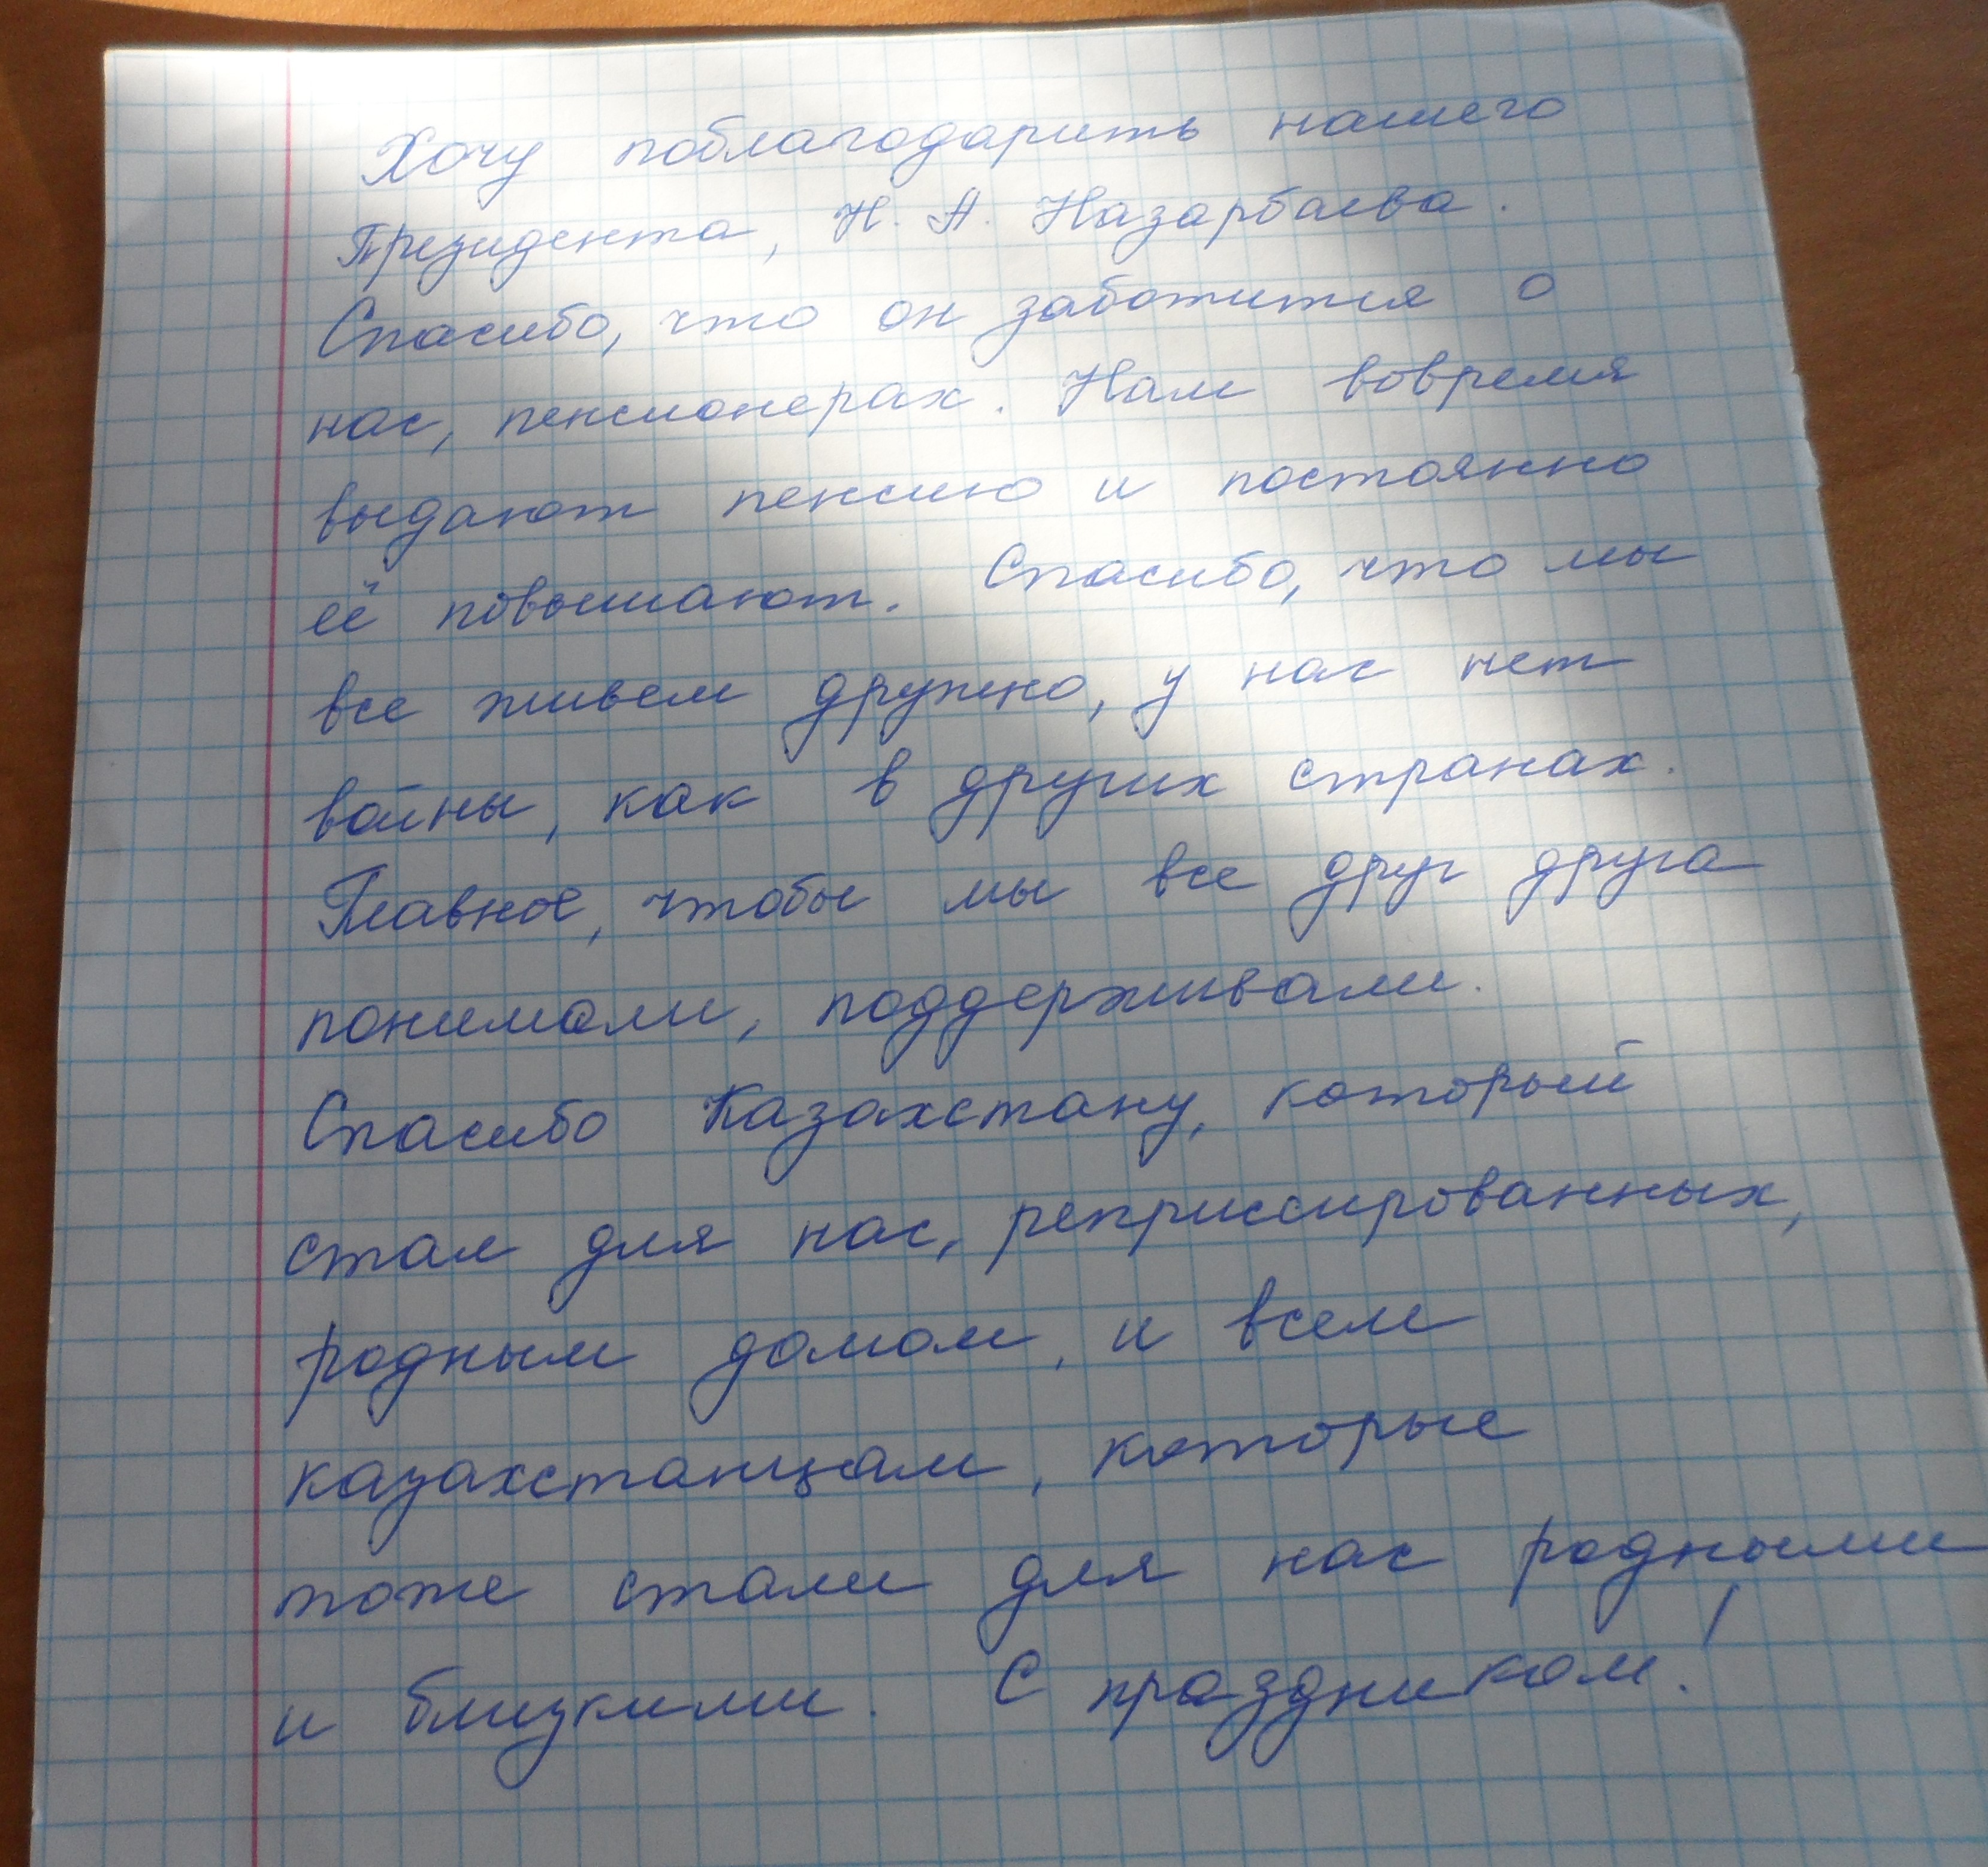 Хочу поблагодарить нашего
Президента, Н. А. Назарбаева.
Спасибо, что он заботится о
нас, пенсионерах. Нам вовремя
выдают пенсию и постоянно
её повышают. Спасибо, что мы
все живем дружно, у нас нет
войны, как в других странах.
Главное, чтобы мы все друг друга
понимали, поддерживали.
Спасибо Казахстану, который
стал для нас, репрессированных,
родным домом, и всем
казахстанцам, которые
тоже стали для нас родными
и близкими. С праздником!